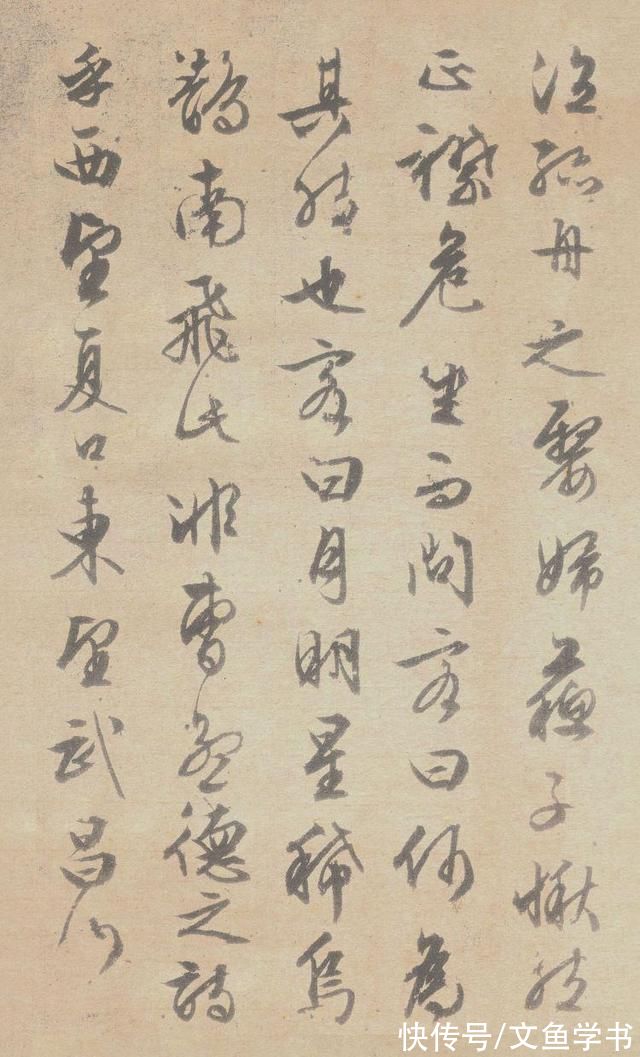 泣孤舟之嫠婦蘇子愀然
正襟危坐而問客曰何為
其然也客曰月明星稀烏
鵲南飛此非曹孟德之詩
乎西望夏口東望武昌山
快传号/文鱼学书